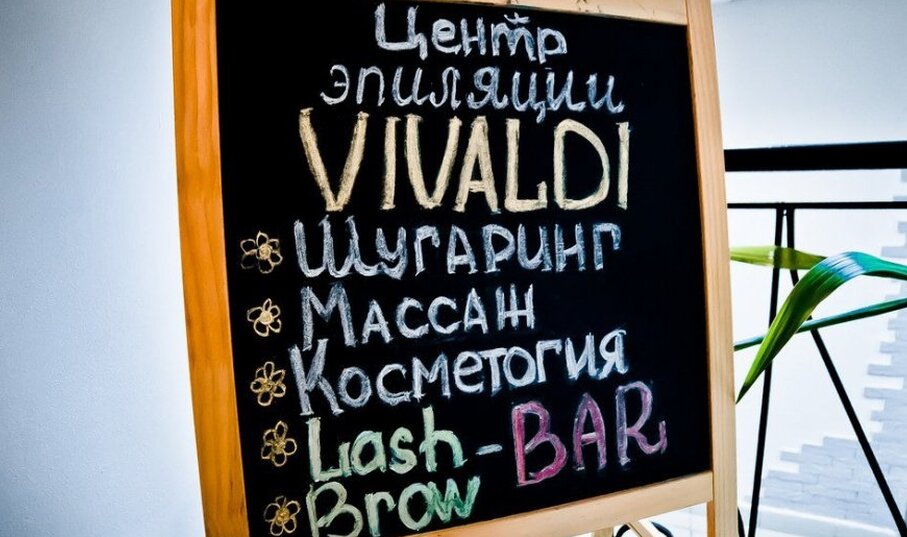 Центр
эпиляции
VIVALDI
Шугаринг
Массаж
Косметогия
Lash-BAR
Brow